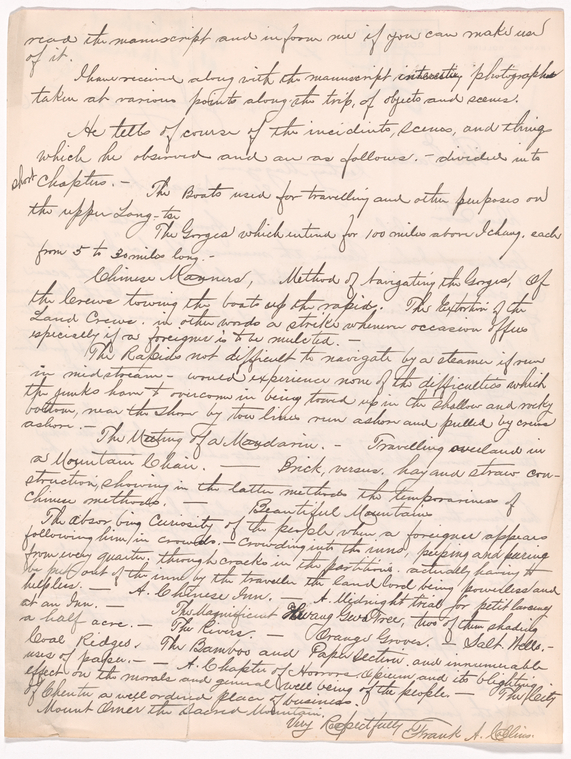 read the manuscript and inform me if you can make use
of it.
I have received along with the manuscript photographs
taken at various points along the trip, of objects and scenes.
He tells of course of the incidents, scenes, and things
which he observed and are as follows. - divided into
short Chapters. - The Boats used for travelling and other purposes on
the upper Yang-tse
The Gorges which extend for 100 miles above Ichang, each
from 5 to 30 miles long. -
Chinese Manners, Method of Navigating the Gorges, Of
the Crews towing the boats up the rapids. The Extortion of the
Land Crews. in other words a strike whenever occasion offers
especially if a foreigner is to be mulcted. -
The Rapids not difficult to navigate by a steamer if run
in midstream - would experience none of the difficulties which
the junks have to overcome in being towed up in the shallow and rocky
bottom, near the shore by tow lines run ashore and pulled by crews
ashore. -
The Meeting of a Mandarin. - Travelling overland in
a Mountain Chair. - Brick, versus, hay and straw con-
struction, showing in the latter methods the temporariness of
Chinese methods. - Beautiful Mountains
The absorbing Curiosity of the people when a foreigner appears
following him in crowds - crowding into the inns, peeping and peering
from every quarter, through cracks in the partitions. actually having to
be put out of the inn by the traveller the landlord being powerless and
helpless. - A. Chinese Inn. - A Midnight trial for petit larceny
at an Inn. - The Magnificent Gwo Trees, two of them shading
a half acre. - The Rivers. - Orange Groves. - Salt Wells. -
Coal Ridges. The Bamboo and Paper Section. and innumerable
uses of paper. - A. Chapter of Horrors Opium and its blighting
effect on the morals and general well being of the people. - The City
of a well ordered place of business.
Mount Omei the Sacred Mountain.
Very Respectfully Frank A. Collins.